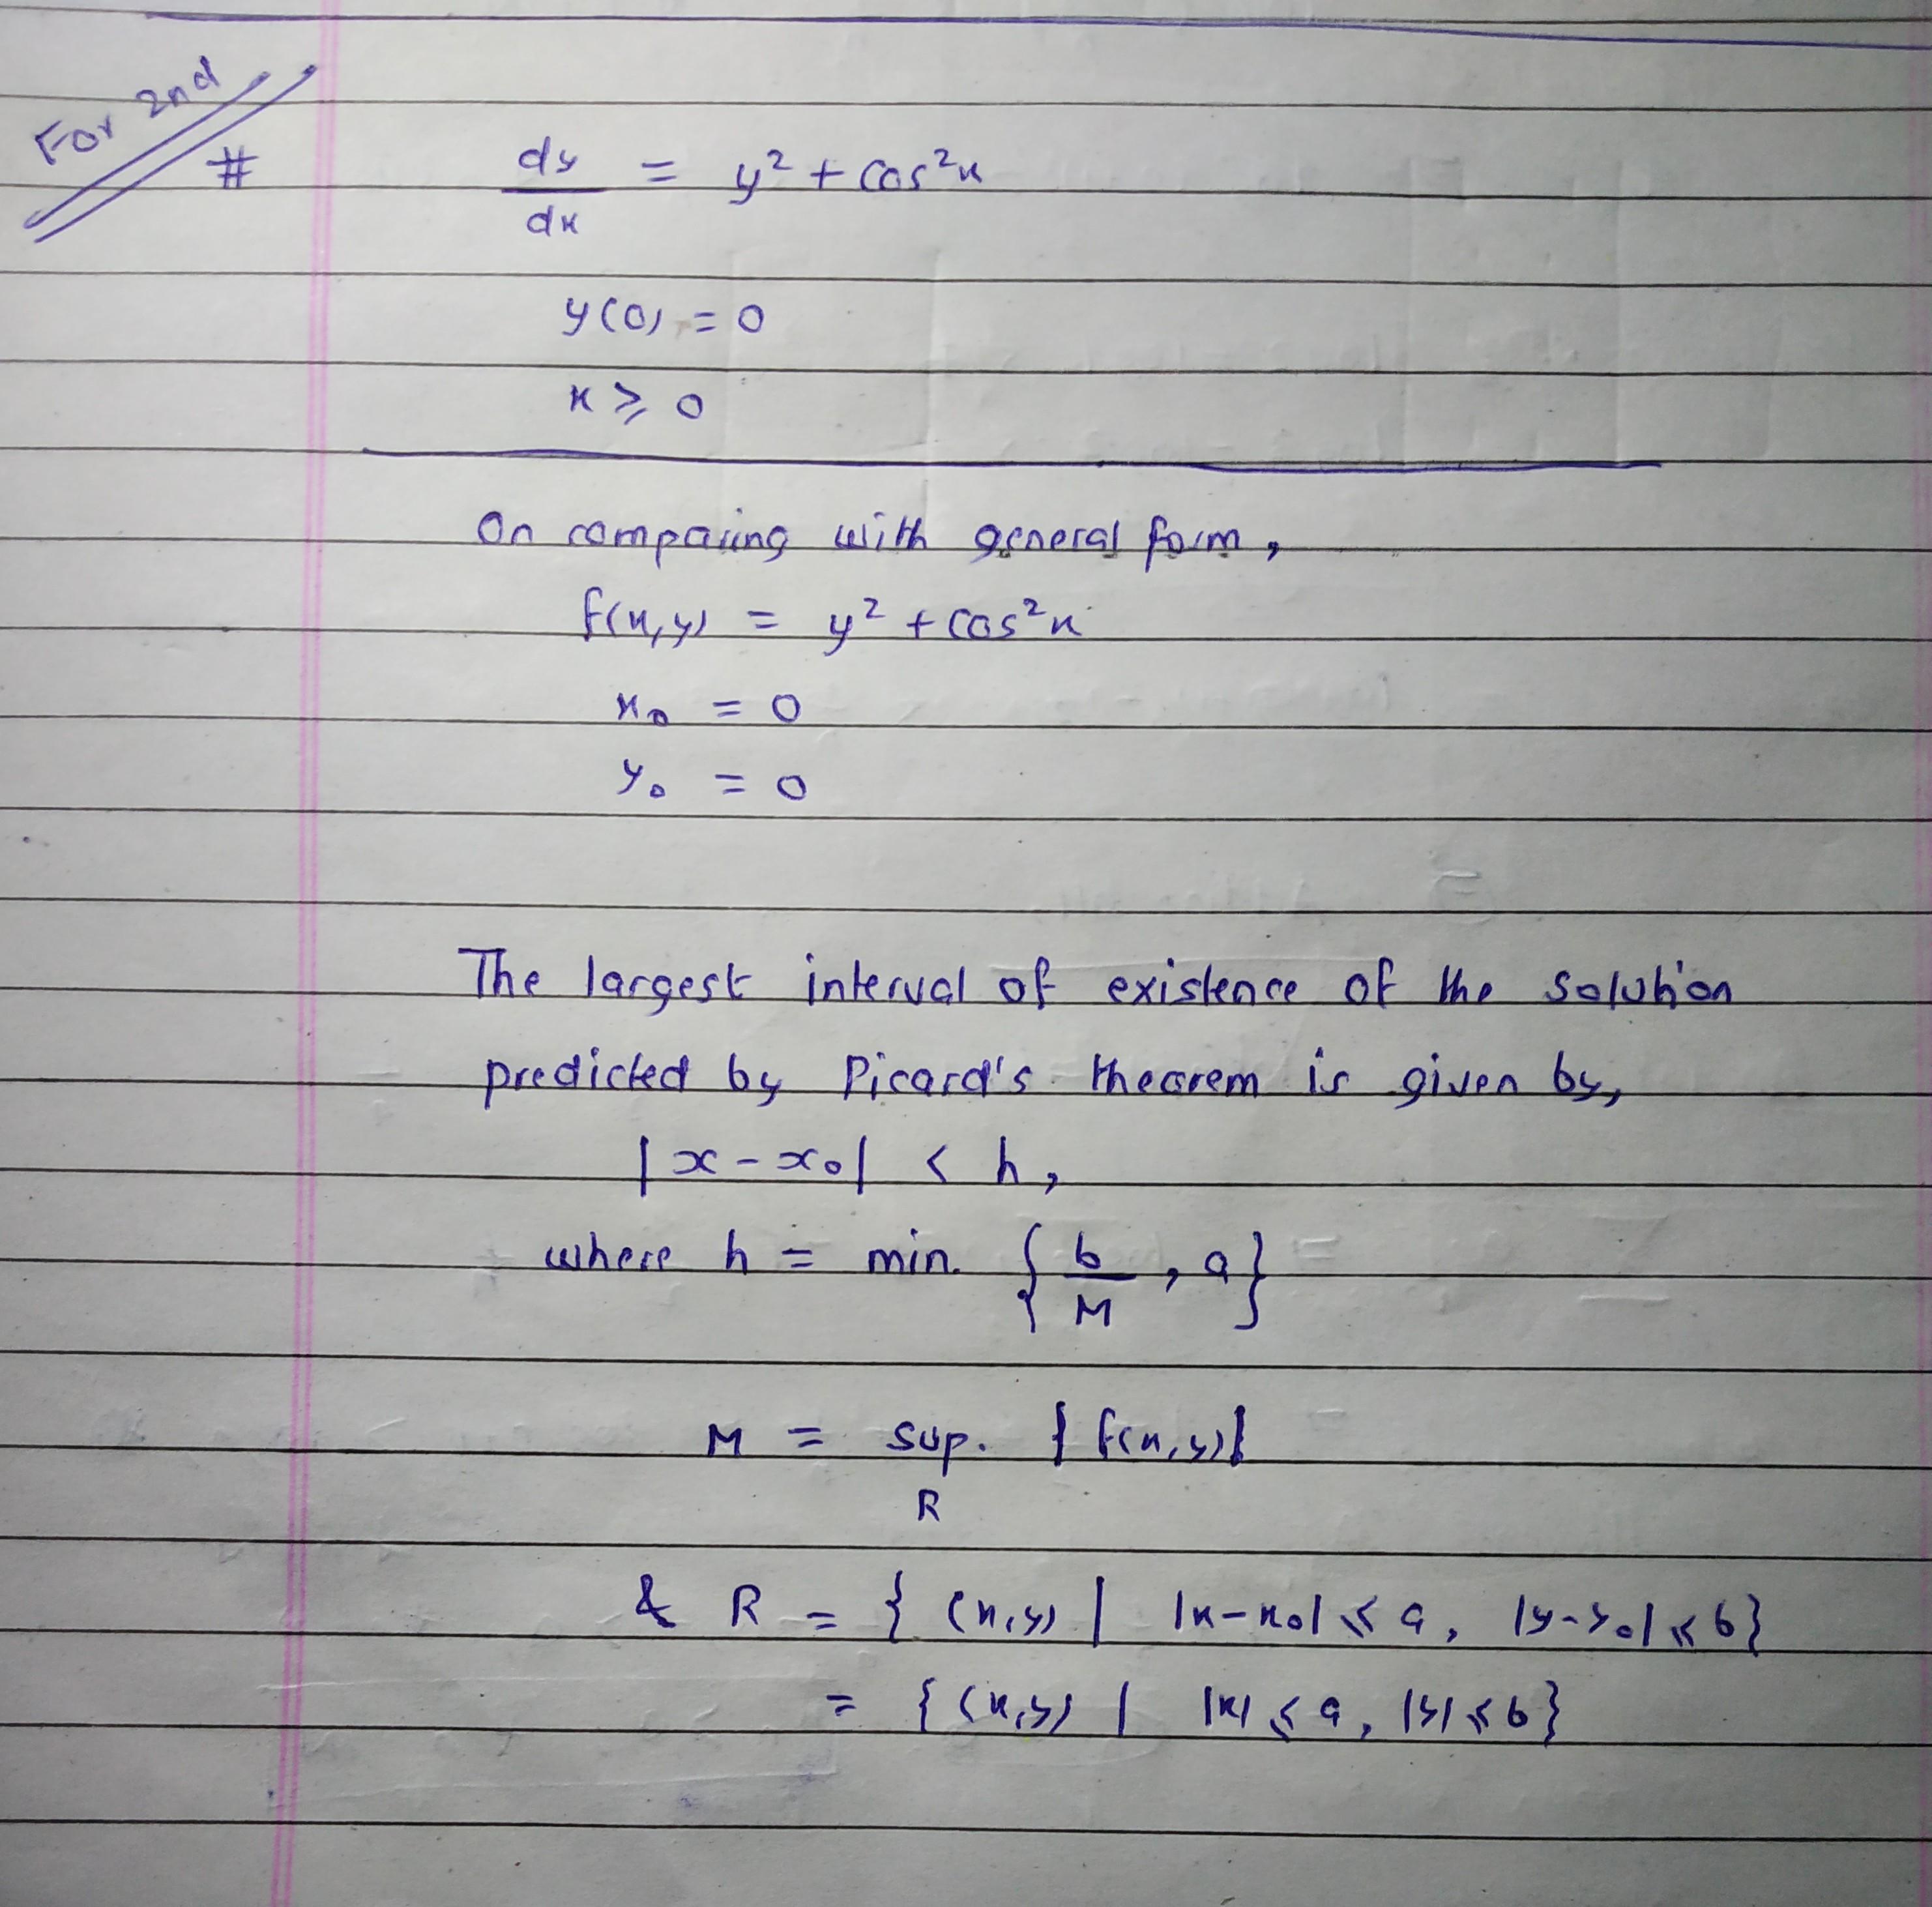 For 2nd
# dy/dx = y² + cos²x
y(0) = 0
x ⩾ 0
On comparing with general form,
f(x,y) = y² + cos²x
x₀ = 0
y₀ = 0
The largest interval of existence of the solution
predicted by Picard's theorem is given by,
|x - x₀| < h,
where h = min. {b/M, a}
M = sup. |f(x,y)|
R
& R = {(x,y) | |x-x₀| ⩽ a, |y-y₀| ⩽ b}
= {(x,y) | |x| ⩽ a, |y| ⩽ b}